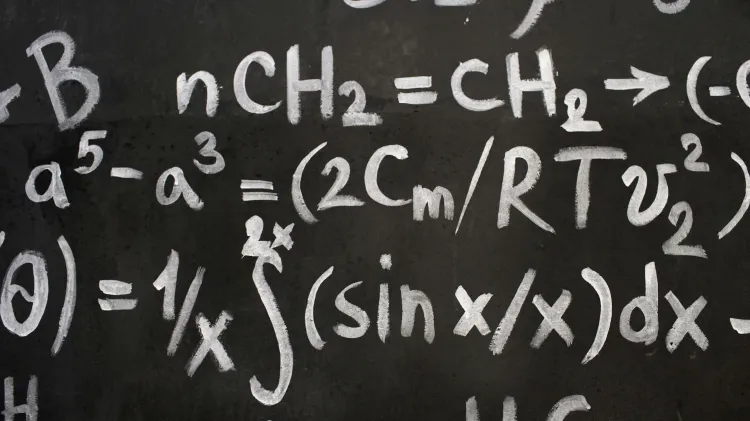 B nCH₂ = CH₂ → (-
a⁵ - a³ = (2Cm/RTv₂²)
θ) = 1/x ∫²ˣ (sin x/x)dx -
H